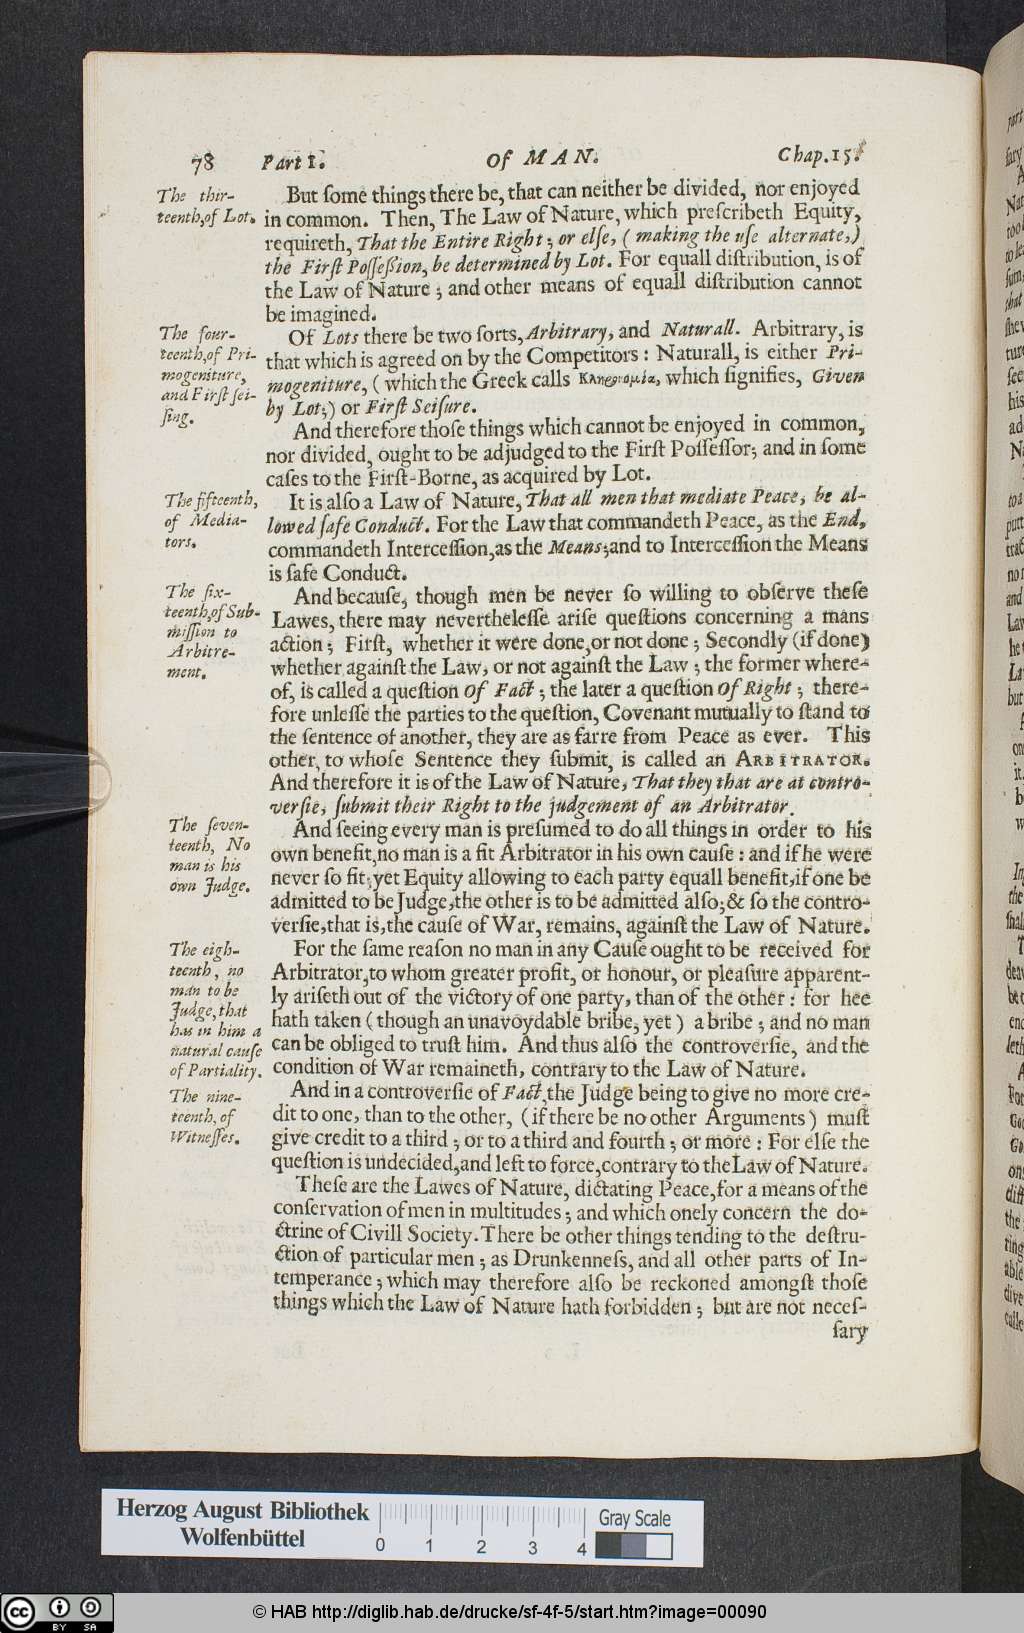 78 Part I. Of MAN. Chap. 15.
The thir-
teenth, of Lot.
But ſome things there be, that can neither be divided, nor enjoyed
in common. Then, The Law of Nature, which preſcribeth Equity,
requireth, That the Entire Right; or elſe, (making the uſe alternate,)
the Firſt Poſſeßion, be determined by Lot. For equall diſtribution, is of
the Law of Nature; and other means of equall diſtribution cannot
be imagined.
The four-
teenth, of Pri-
mogeniture,
and Firſt ſei-
ſing.
Of Lots there be two ſorts, Arbitrary, and Naturall. Arbitrary, is
that which is agreed on by the Competitors: Naturall, is either Pri-
mogeniture, (which the Greek calls Κληρονομία, which ſignifies, Given
by Lot;) or Firſt Seiſure.
And therefore thoſe things which cannot be enjoyed in common,
nor divided, ought to be adjudged to the Firſt Poſſeſſor; and in ſome
caſes to the Firſt-Borne, as acquired by Lot.
The fifteenth,
of Media-
tors.
It is alſo a Law of Nature, That all men that mediate Peace, be al-
lowed ſafe Conduct. For the Law that commandeth Peace, as the End,
commandeth Interceſſion, as the Means; and to Interceſſion the Means
is ſafe Conduct.
The ſix-
teenth, of Sub-
miſſion to
Arbitre-
ment.
And becauſe, though men be never ſo willing to obſerve theſe
Lawes, there may nevertheleſſe ariſe queſtions concerning a mans
action; Firſt, whether it were done, or not done; Secondly (if done)
whether againſt the Law, or not againſt the Law; the former where-
of, is called a queſtion Of Fact; the later a queſtion Of Right; there-
fore unleſſe the parties to the queſtion, Covenant mutually to ſtand to
the ſentence of another, they are as farre from Peace as ever. This
other, to whoſe Sentence they ſubmit, is called an ARBITRATOR.
And therefore it is of the Law of Nature, That they that are at contro-
verſie, ſubmit their Right to the judgement of an Arbitrator.
The ſeven-
teenth, No
man is his
own Judge.
And ſeeing every man is preſumed to do all things in order to his
own benefit, no man is a fit Arbitrator in his own cauſe: and if he were
never ſo fit; yet Equity allowing to each party equall benefit, if one be
admitted to be Judge, the other is to be admitted alſo; & ſo the contro-
verſie, that is, the cauſe of War, remains, againſt the Law of Nature.
The eigh-
teenth, no
man to be
Judge, that
has in him a
natural cauſe
of Partiality.
For the ſame reaſon no man in any Cauſe ought to be received for
Arbitrator, to whom greater profit, or honour, or pleaſure apparent-
ly ariſeth out of the victory of one party, than of the other: for hee
hath taken (though an unavoydable bribe, yet) a bribe; and no man
can be obliged to truſt him. And thus alſo the controverſie, and the
condition of War remaineth, contrary to the Law of Nature.
The nine-
teenth, of
Witneſſes.
And in a controverſie of Fact, the Judge being to give no more cre-
dit to one, than to the other, (if there be no other Arguments) muſt
give credit to a third; or to a third and fourth; or more: For elſe the
queſtion is undecided, and left to force, contrary to the Law of Nature.
Theſe are the Lawes of Nature, dictating Peace, for a means of the
conſervation of men in multitudes; and which onely concern the do-
ctrine of Civill Society. There be other things tending to the deſtru-
ction of particular men; as Drunkenneſs, and all other parts of In-
temperance; which may therefore alſo be reckoned amongſt thoſe
things which the Law of Nature hath forbidden; but are not neceſ-
ſary
Herzog August Bibliothek
Wolfenbüttel
0 1 2 3 4
Gray Scale
cc BY SA
© HAB http://diglib.hab.de/drucke/sf-4f-5/start.htm?image=00090